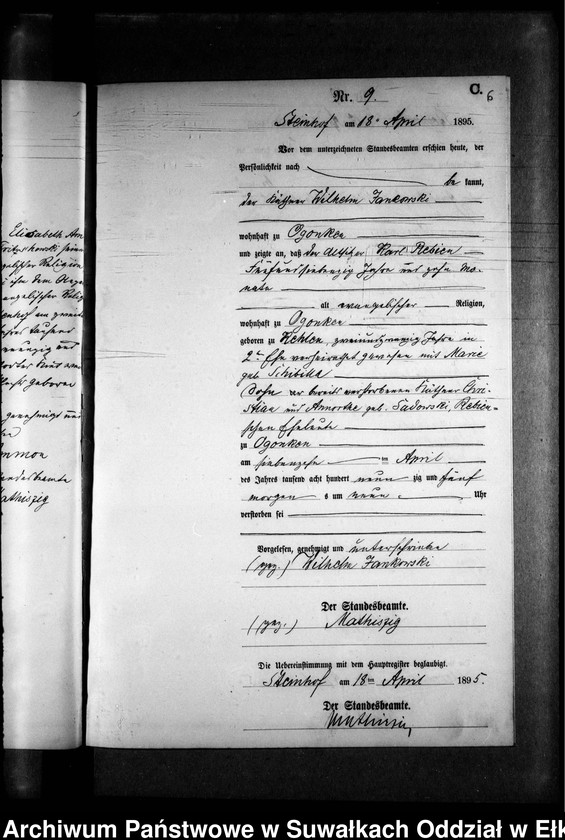 Elisabeth
Religion
geboren
Mathiszig
C.
6
Nr. 9.
Steinhof am 18 April 1895.
Vor dem unterzeichneten Standesbeamten erschien heute, der
Persönlichkeit nach
be kannt,
der Käthner Wilhelm Jankowski
wohnhaft zu Ogonken
und zeigte an, daß der Altsitzer Karl Rebien
Fünfundsiebenzig Jahre und zehn Mo-
nate
alt evangelischer Religion,
wohnhaft zu Ogonken
geboren zu Kehlen, zweiundzwanzig Jahre in
2ter Ehe verheirathet gewesen mit Marie
geb.
Sohn der bereits verstorbenen Käthner Chri-
stian und geb. Sadowski, Rebien-
schen Eheleute
zu Ogonken
am siebenzehn ten April
des Jahres tausend acht hundert neun zig und fünf
morgen s um neun Uhr
verstorben sei
Vorgelesen, genehmigt und unterschrieben
(gez.) Wilhelm Jankowski
Der Standesbeamte.
(gez.) Mathiszig
Die Uebereinstimmung mit dem Hauptregister beglaubigt.
Steinhof am 18ten April 1895.
Der Standesbeamte.
Mathiszig
Archiwum Państwowe w Suwałkach Oddział w Ełk